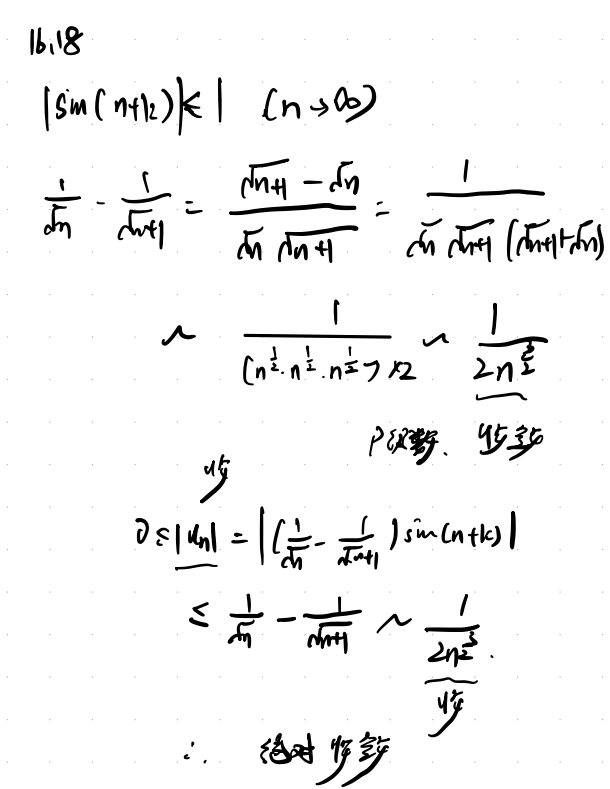 16.18
|sin(n+k)| ≤ 1 (n→∞)
1/√n - 1/√(n+1) = (√(n+1) - √n)/(√n √(n+1)) = 1/(√n √(n+1) (√(n+1)+√n))
~ 1/((n^(1/2)·n^(1/2)·n^(1/2))×2) ~ 1/(2n^(3/2))
P级数. 收敛
收敛
0 ≤ |u_n| = |(1/√n - 1/√(n+1)) sin(n+k)|
≤ 1/√n - 1/√(n+1) ~ 1/(2n^(3/2)).
收敛
∴ 绝对收敛